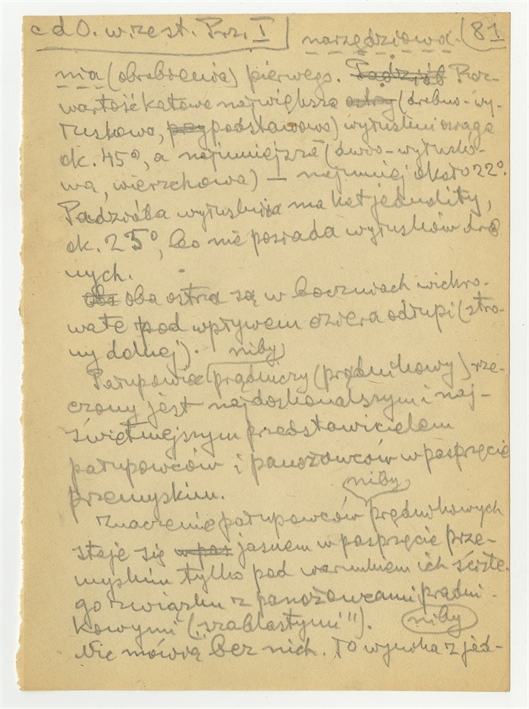 cd O. w rzest. Prz. I narzędziowa- 81
nia (obrobienia) pierwego. Podziób Roz-
wartość kątowa największa (drobno-wy-
łuskowa, podstawowa) wyłuskni osiąga
ok. 45°, a najmniejsza (dwu-wyłusko-
wa, wierzchowa) — najmniej około 22°.
Podzióba wyłusknia ma kąt jednolity,
ok. 25°, bo nie posiada wyłusków drob
nych.
oba ostrza są w bocznicach wichro-
wate pod wpływem dziera odłupi (stro-
ny dolnej). niby
Płatupowiec prądniczy (prądnikowy) rze-
czony jest najdoskonalszym i naj-
świetniejszym przedstawicielem
płatupowców i panożowców w pasprzęcie
przemyskim. niby
Znaczenie płatupowców prądnikowych
staje się jasnem w pasprzęcie prze-
myskim tylko pod warunkiem ich ścisłe-
go związku z panożowcami prądni-
kowymi ("szablastymi"). niby
Nie mówią bez nich. To wynika z jed-